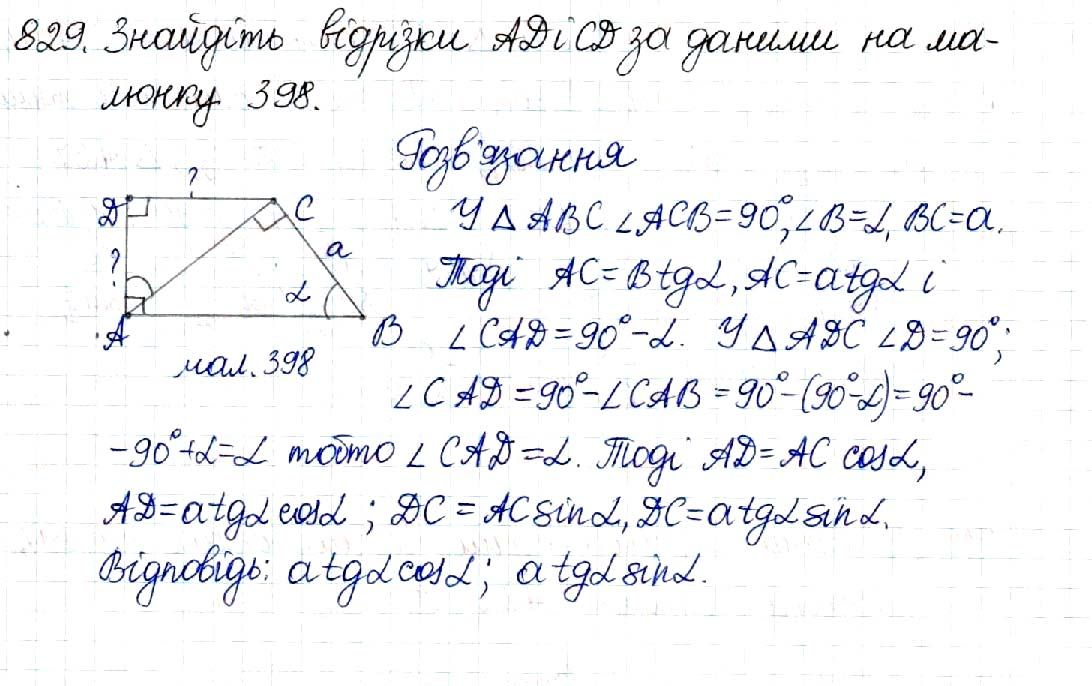 829. Знайдіть відрізки AD і CD за даними на ма-
люнку 398.
Розв'язання
D ? C
У △ ABC ∠ACB=90°, ∠B=α, BC=a.
? a α
Тоді AC=Btgα, AC=atgα і
A B
∠CAD=90°-α. У △ ADC ∠D=90°;
мал. 398
∠CAD=90°-∠CAB=90°-(90°-α)=90°-
-90°+α=α тобто ∠CAD=α. Тоді AD=AC cosα,
AD=atgα cosα; DC=AC sinα, DC=atgα sinα.
Відповідь: atgα cosα; atgα sinα.